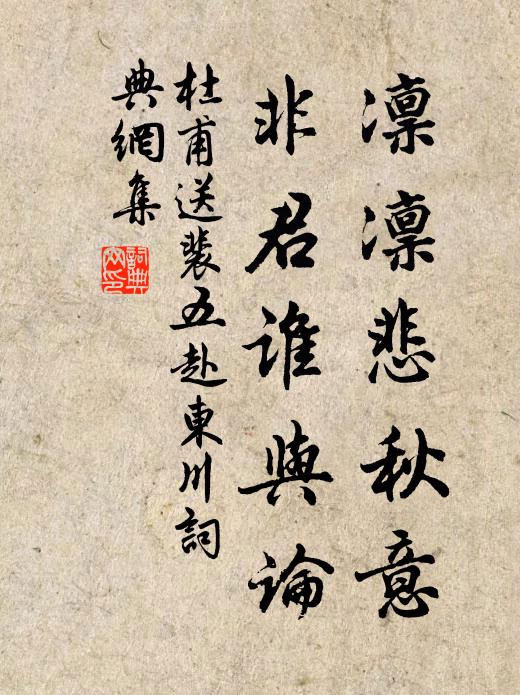 凜凜悲秋意
非君誰與論
杜甫送裴五赴東川詞
典網集
詞典
网印